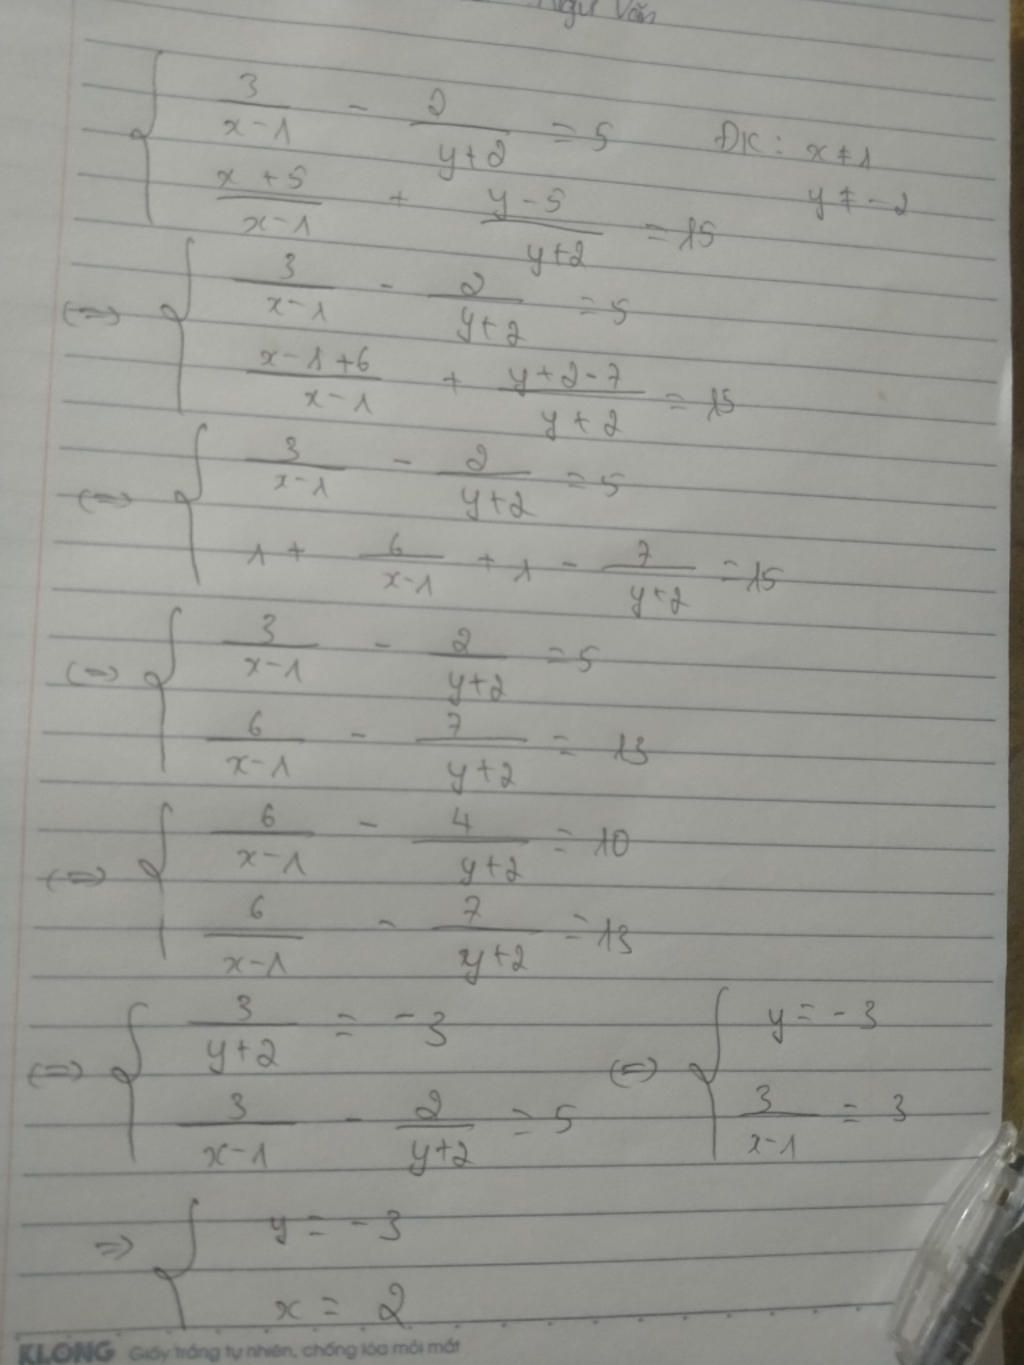 Ngữ Văn
{ 3/(x-1) - 2/(y+2) = 5 ĐK: x ≠ 1
(x+5)/(x-1) + (y-5)/(y+2) = 15 y ≠ -2
(=) { 3/(x-1) - 2/(y+2) = 5
(x-1+6)/(x-1) + (y+2-7)/(y+2) = 15
(=) { 3/(x-1) - 2/(y+2) = 5
1 + 6/(x-1) + 1 - 7/(y+2) = 15
(=) { 3/(x-1) - 2/(y+2) = 5
6/(x-1) - 7/(y+2) = 13
(=) { 6/(x-1) - 4/(y+2) = 10
6/(x-1) - 7/(y+2) = 13
(=) { 3/(y+2) = -3 (=) { y = -3
3/(x-1) - 2/(y+2) = 5 3/(x-1) = 3
=> { y = -3
x = 2
KLONG Giấy trắng tự nhiên, chống lóa mỏi mắt